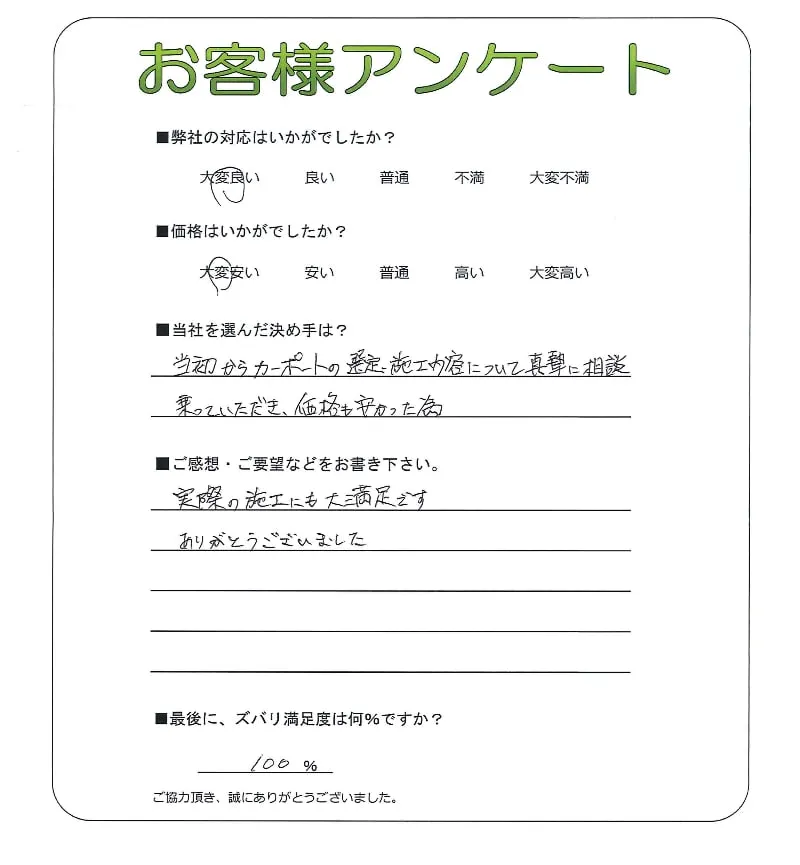 お客様アンケート
■弊社の対応はいかがでしたか？
大変良い 良い 普通 不満 大変不満
■価格はいかがでしたか？
大変安い 安い 普通 高い 大変高い
■当社を選んだ決め手は？
当初からカーポートの選定、施工内容について真摯に相談
乗っていただき、価格も安かった為
■ご感想・ご要望などをお書き下さい。
実際の施工にも大満足です
ありがとうございました
■最後に、ズバリ満足度は何%ですか？
100 %
ご協力頂き、誠にありがとうございました。